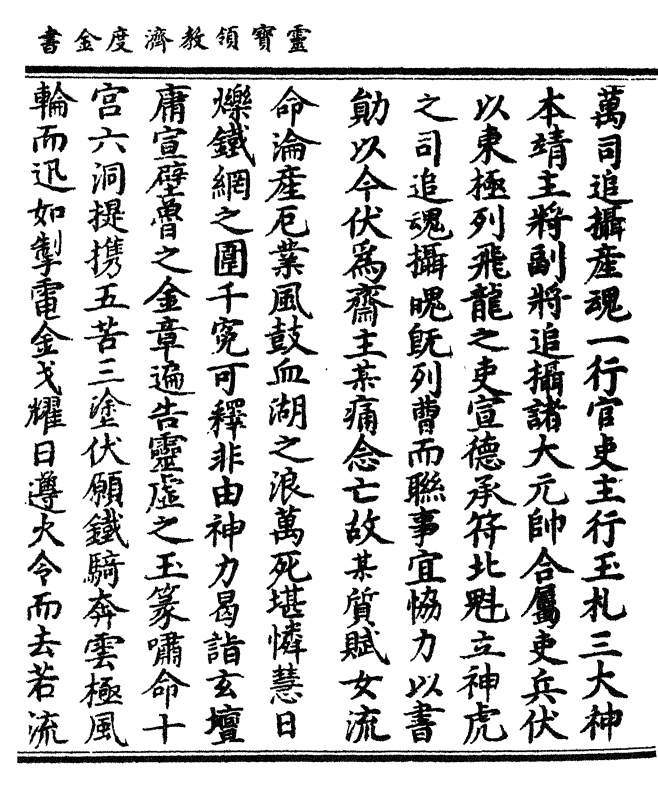 靈寶領教濟度金書
萬司追攝産魂一行官吏主行玉札三大神
本靖主將副將追攝諸大元帥合屬吏兵伏
以東極列飛龍之吏宣德承符北魁立神虎
之司追魂攝魄旣列曹而聯事宜恊力以書
勛以今伏爲齋主某痛念亡故某質賦女流
命淪産厄業風鼓血湖之浪萬死堪憐慧日
爍鐵網之圍千寃可釋非由神力曷詣玄壇
庸宣壁魯之金章遍告靈虛之玉篆嘯命十
宫六洞提携五苦三塗伏願鐵騎奔雲極風
輪而迅如掣電金戈耀日遵火令而去若流